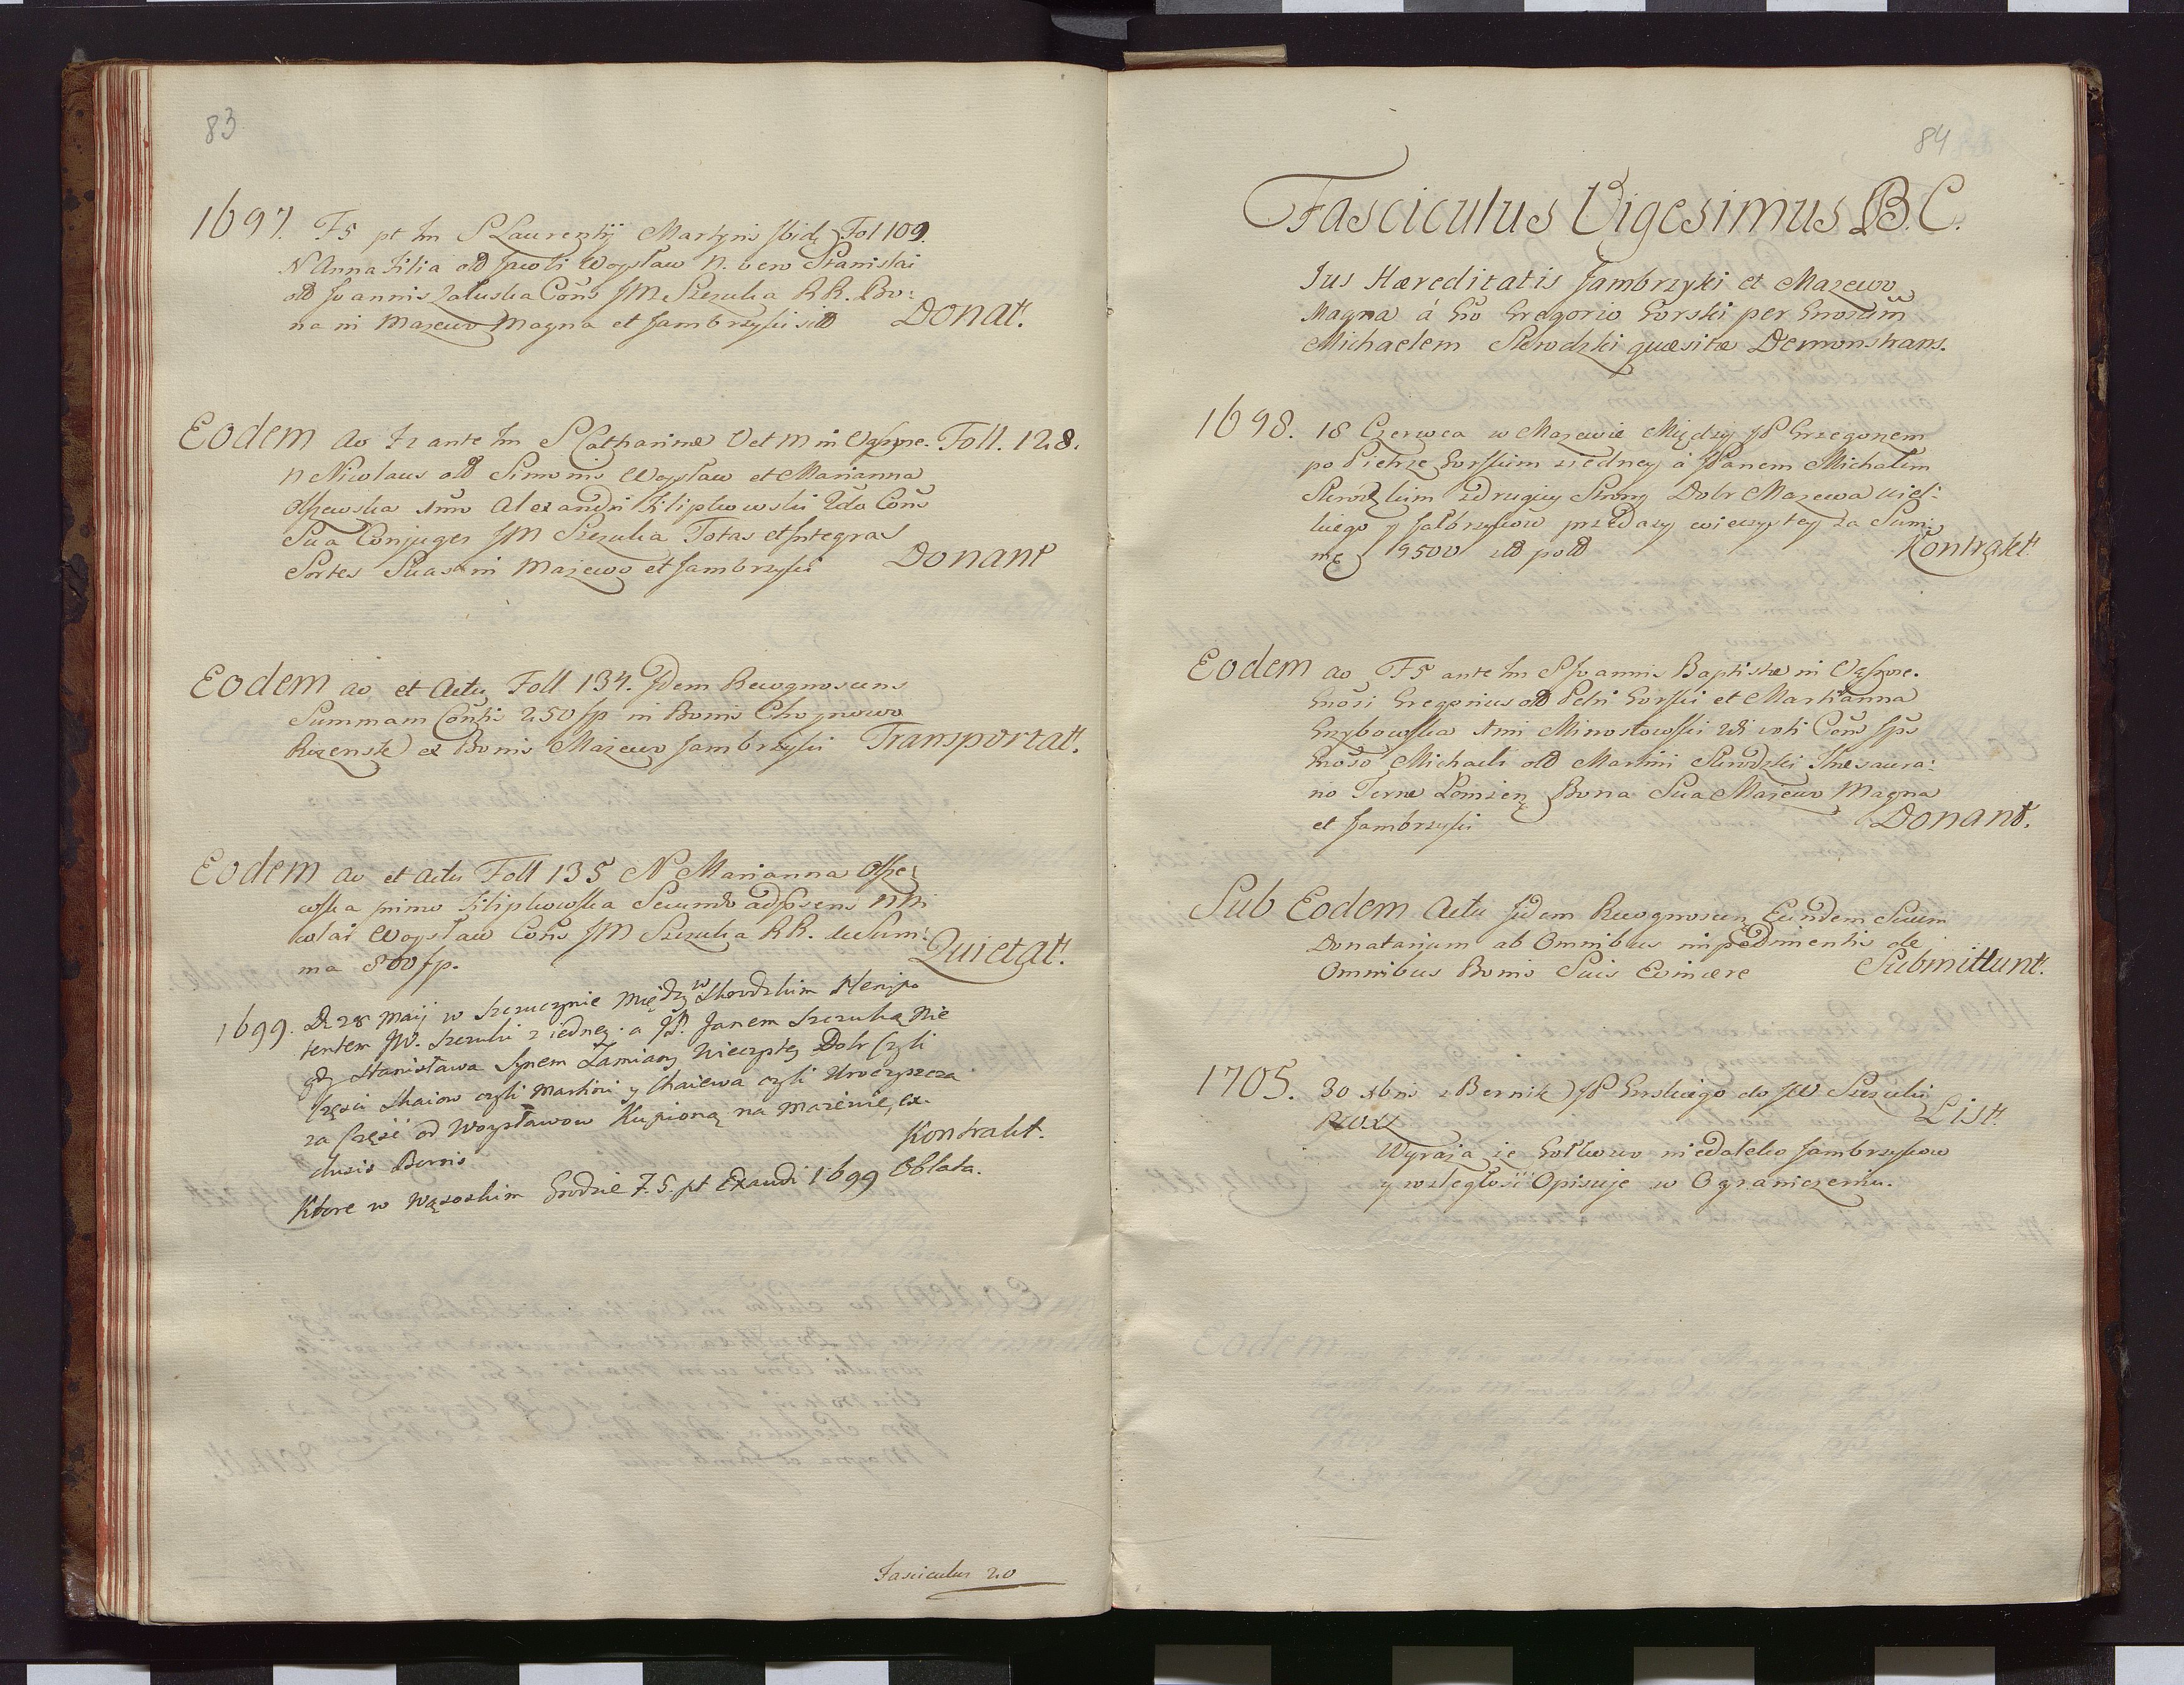 83
1697. F5 pt fm S Laurentij Martyris Ibid Fol 109.
N Anna Filia olt Jacobi Woysław N. vero Stanislai
olt Joannis Załuska Cons JM Szczuka RR. Bo:
na in Mazewo Magna et Jambrzyki sitt Donat.
Eodem Ao F2 ante fm S Catharinæ V et M in Vąssze. Foll. 128.
N Nicolaus olt Simonis Woysław et Marianna
Olszewska 1mo Alexandri Filipkowski 2do Cons
Sua Conjuges JM Szczuka Totas et Integras
Sortes Suas in Mazewo et Jambrzyki Donant
Eodem ao et Actu Foll 134. Idem Recognoscens
Summam 250 fp in Bonis Choynowo
ex Bonis Mazewo Jambrzyki Transportat.
Eodem ao et Actu Foll 135 N Marianna Olsze
wska primo Filipkowska Secundo N Ni
colai Woysław Cons JM Szczuka RR. de Sum:
ma 800 fp. Quietat.
1699. D 28 Maij w Szczuczynie między w
tentem JW. Szczuki z iedney. a JP. Janem Szczuką Nie
gdy Stanisława Synem Zamiany Wieczystey Dobr Czyli
Części czyli Markini y Chaiewa czyli
za Część od Woysławow Kupioną na Mazewie, ex-
Bonis Kontrakt.
Ktore w Wąsoskim Grodzie F. 5. pt Exaudi 1699 Oblata.
Fasciculus 20
84
Fasciculus Vigesimus B. C.
Jus Hæreditatis Jambrzyki et Mazewo
Magna á Gro Gregorio Gorski per Gnosum
Michaelem Sierodzki quæsitæ Demonstrans.
1698. 18 Czerwca w Mazewie Między JP Grzegorzem
po Pietrze Gorskim z iedney á JPanem Michałem
Sierodzkim z drugiey Strony Dobr Mazewa wiel:
kiego y Jabrzykow przedaży wieczystey za Sum:
mę 9500 złt polt Kontrakt
Eodem ao F5 ante fm S Joannis Baptistæ in Vąssze.
Gnosi Gregorius olt Petri Gorski et Marianna
Grzybowska 1mi Minostowski 2di voti Cons
Gnoso Michaeli olt Martini Sierodzki Thesaura:
rio Terræ Łomżen Bona Sua Mazewo Magna
et Jambrzyki Donant.
Sub Eodem Actu Iidem Recognoscen Eundem Suum
Donatarium ab Omnibus impedimentis de
Omnibus Bonis Suis Evincere Submittunt.
1705. 30 Xbris z Bernik JP Gorskiego do JW Szczuki
List.
Wyraża że Gołkowo niedaleko Jambrzykow
y rozległość Opisuje w Ograniczeniu.
Eodem